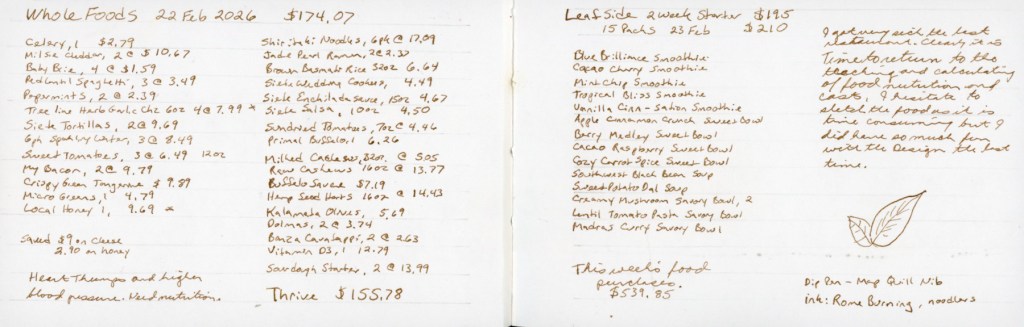 Whole Foods 22 Feb 2026 $174.07
Celery, 1 $2.79
2 @ $10.67
Baby Brie, 4 @ $1.59
Red Lentil Spaghetti, 3 @ 3.49
Peppermints, 2 @ 2.39
Tree line Herb Garlic Chz 6oz 4@ 7.99 *
Siete Tortillas, 2@ 9.69
6pk Sparkling Water, 3 @ 8.49
Sweet Tomatoes, 3 @ 6.49 12oz
My Bacon, 2@ 9.79
Crispy Green Tangerine $ 9.89
Micro Greens, 1 4.79
Local Honey 1, 9.69 *
Saved $9 on cheese
2.90 on honey
Heart Thumps and higher
blood pressure. Need nutrition.
Shiritaki Noodles, 6pk @ 17.09
Jade Pearl Ramen, 2@ 2.37
Brown Basmati Rice 32oz 6.64
Siete Wedding Cookies, 4.49
Siete Enchilada Sauce, 15oz 4.67
Siete Salsa, 10oz 4.50
Sundried Tomatoes, 7oz @ 4.46
Primal Buffalo, 1 6.26
Milked Cashews, 32oz. @ 5.05
Raw Cashews 16oz @ 13.77
Buffalo Sauce $7.19
Hemp Seed Hearts 16oz @ 14.43
Kalamata Olives, 5.69
Dolmas, 2 @ 3.74
Banza Cavatappi, 2 @ 2.63
Vitamin D3, 1 12.79
Sourdough Starter, 2 @ 13.99
Thrive $155.78
Leaf Side 2 Week Starter $195
15 Packs 23 Feb $210
Blue Brilliance Smoothie
Cacao Cherry Smoothie
Mint Chip Smoothie
Tropical Bliss Smoothie
Vanilla Cinn-sation Smoothie
Apple Cinnamon Crunch Sweet Bowl
Berry Medley Sweet Bowl
Cacao Raspberry Sweet Bowl
Cozy Carrot Spice Sweet Bowl
Southwest Black Bean Soup
Sweet Potato Dal Soup
Creamy Mushroom Savory Bowl, 2
Lentil Tomato Pasta Savory Bowl
Madras Curry Savory Bowl
This week's food
purchases.
$539.85
I got very sick the last
restaurant. Clearly it is
time to return to the
tracking and calculating
of food nutrition and
costs. I hesitate to
sketch the food as it is
time consuming but I
did have so much fun
with the Design the last
time.
Dip Pen - Map Quill Nib
ink: Rome Burning, noodlers